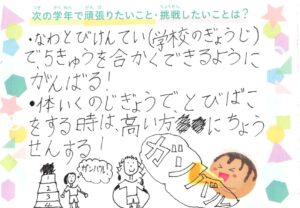 次の学年で頑張りたいこと・挑戦したいことは？
・なわとびけんてい(学校のぎょうじ)
で、5きゅうを合かくできるように
がんばる！
・体いくのじぎょうで、とびばこ
をする時は、高い方にちょう
せんする！
ガンバル！
ガンバル
1
2
3
4